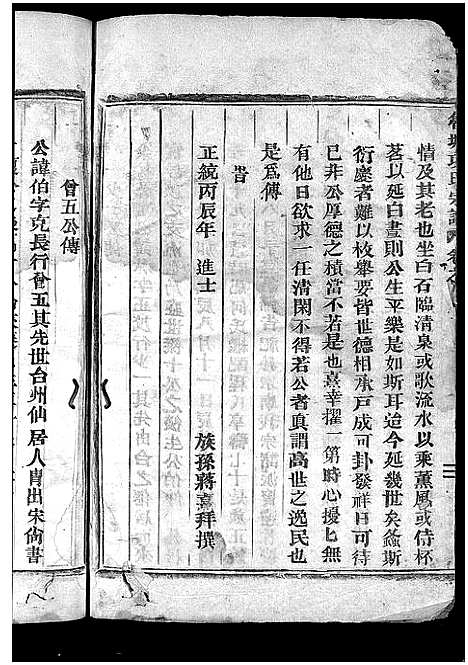 情及其老也坐白石臨清泉或歌流水以乘薰風或侍杯
茗以延白晝則公生平樂是如斯耳迨今延幾世矣螽斯
衍慶者難以枚舉要皆世德相承戶成可封發祥日可待
已非公厚德之積當不若是也熹幸擢一第時心擾匕無
有他日欲求一任清閑不得若公者真謂高世之逸民也
是爲傳
旹
正統丙辰年 進士
族孫蔣熹拜撰
曾五公傳
公諱伯字克長行曾五其先世台州仙居人冑出宋尙書